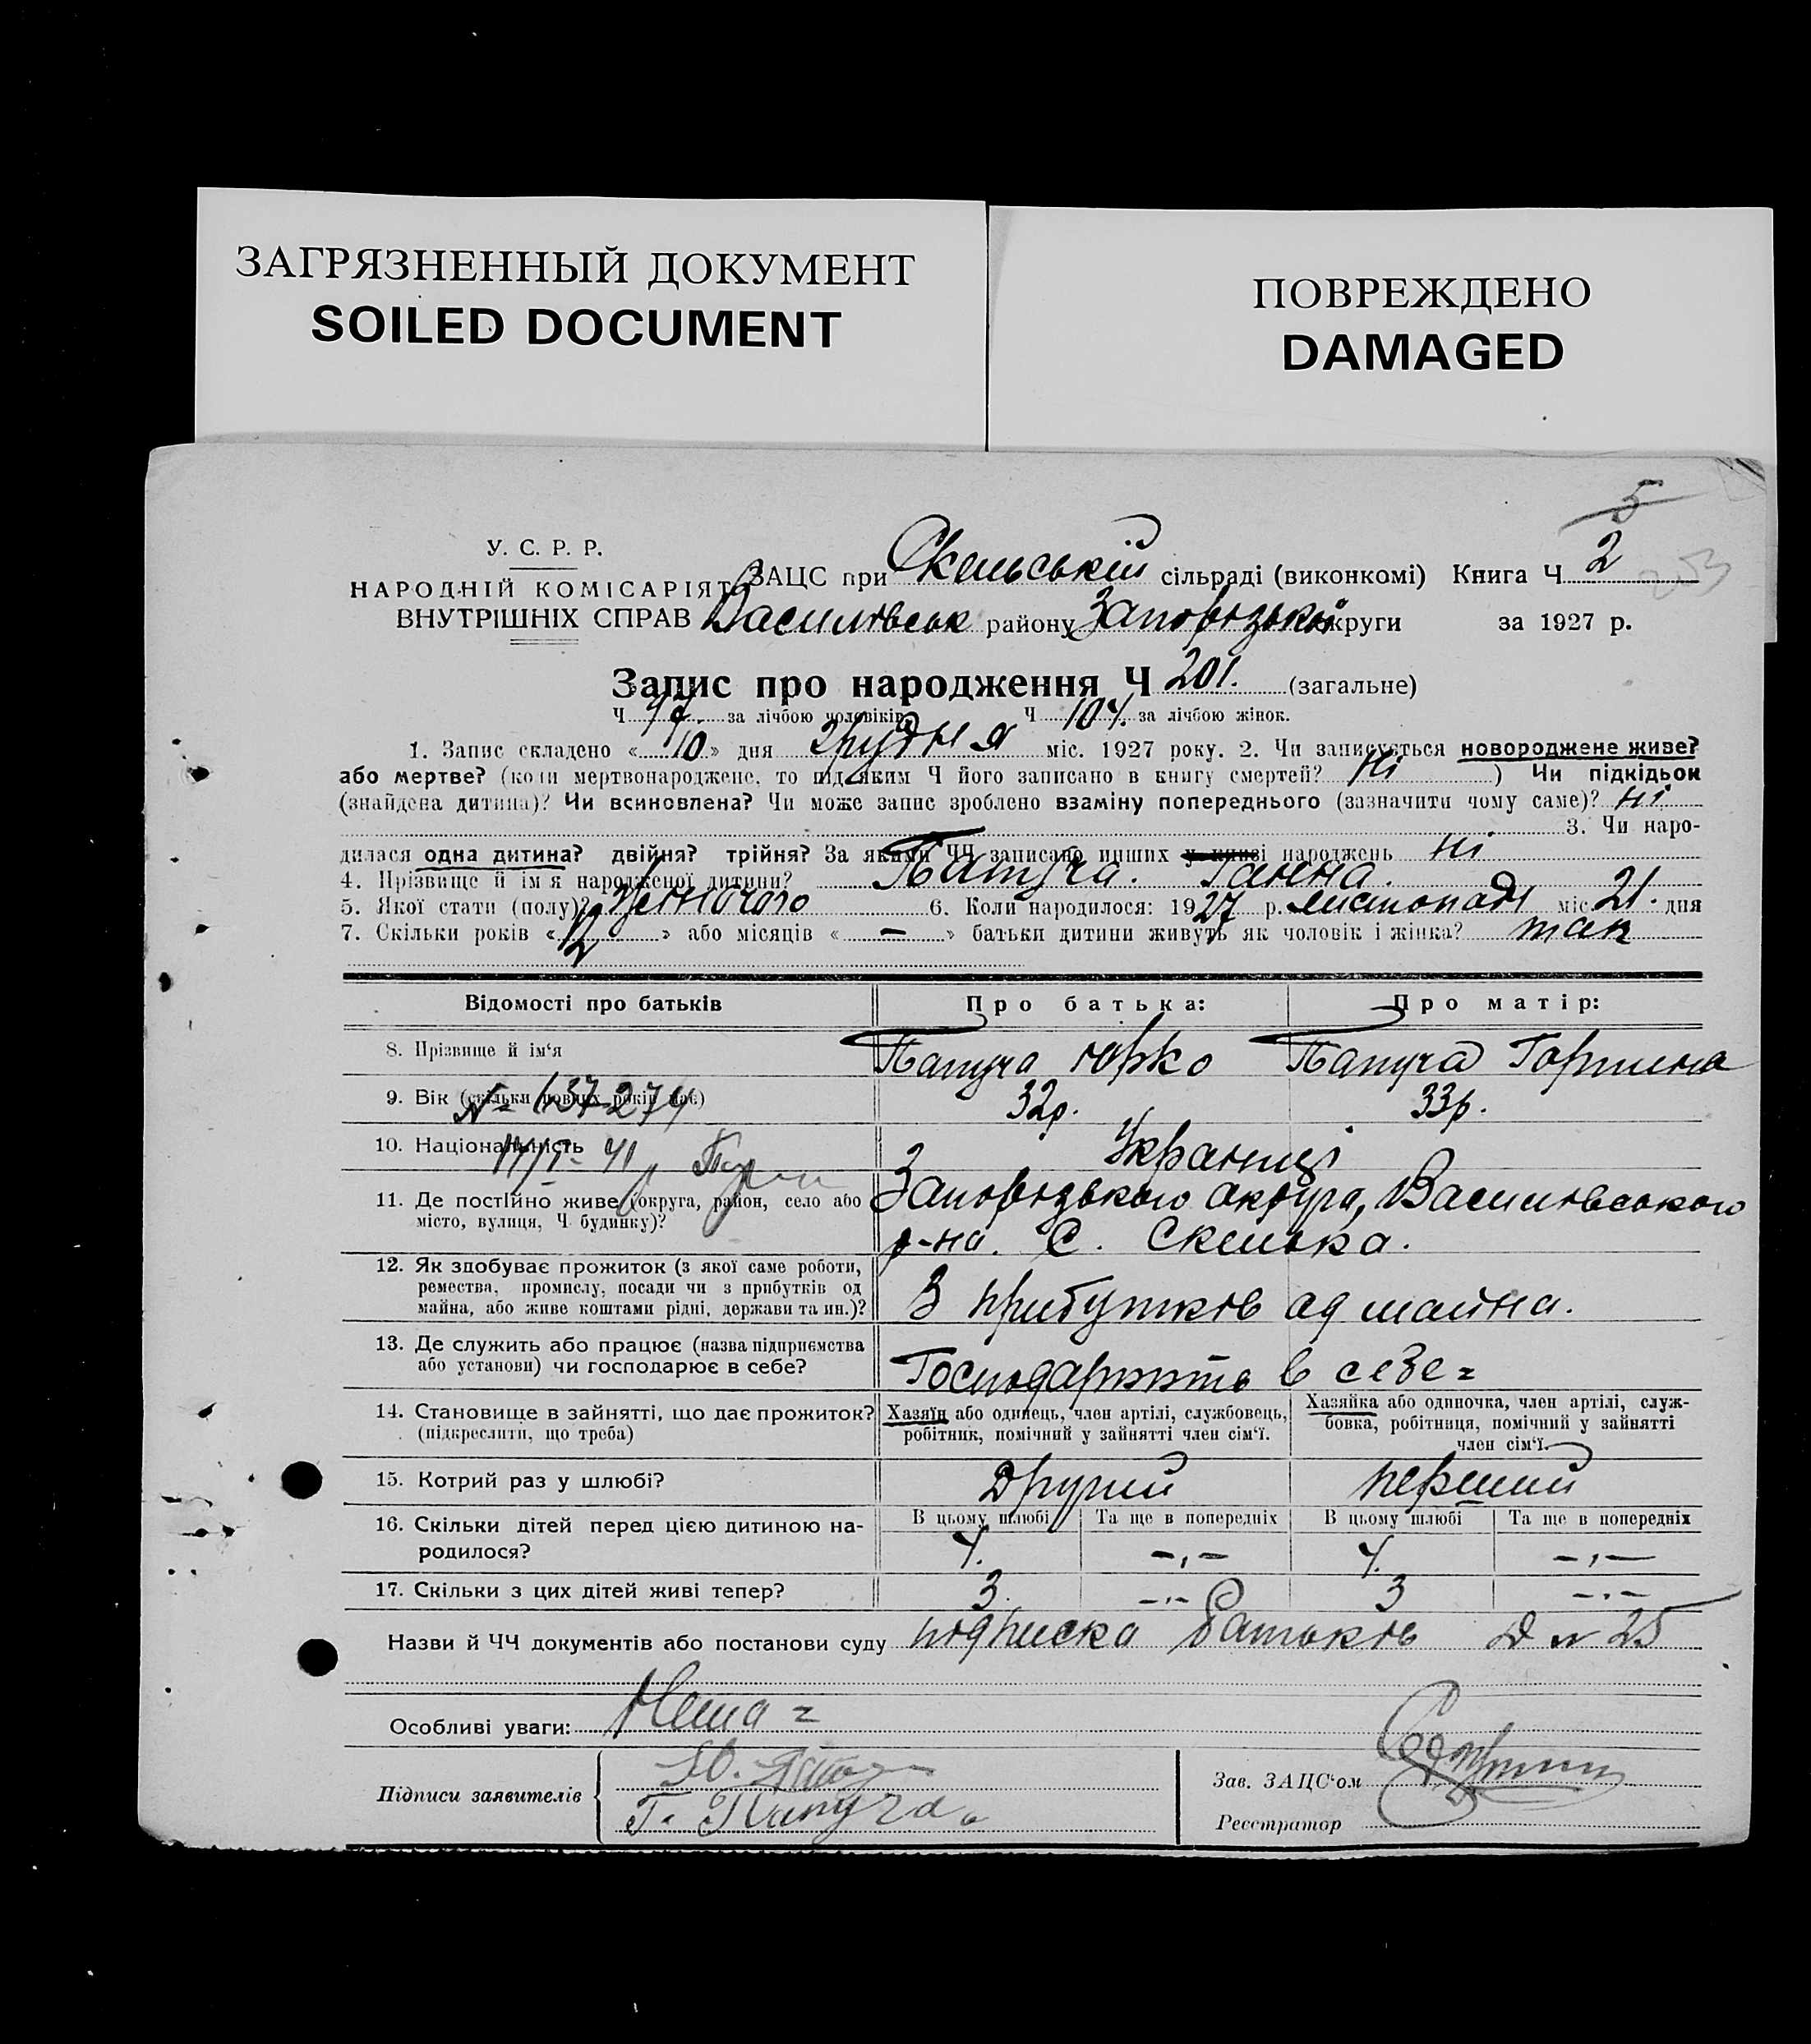 ЗАГРЯЗНЕННЫЙ ДОКУМЕНТ
SOILED DOCUMENT
ПОВРЕЖДЕНО
DAMAGED
5
У. С. Р. Р.
НАРОДНІЙ КОМІСАРІЯТ
ВНУТРІШНІХ СПРАВ
ЗАЦС при Скельській сільраді (виконкомі) Книга Ч 2
Василівськ району Запорізької округи за 1927 р.
Запис про народження Ч 201. (загальне)
Ч 97 за лічбою чоловіків Ч 104. за лічбою жінок.
1. Запис складено «10» дня Грудня міс. 1927 року. 2. Чи записується новороджене живе?
або мертве? (коли мертвонароджене, то під яким Ч його записано в книгу смертей? Ні ) Чи підкідьок
(знайдена дитина)? Чи всиновлена? Чи може запис зроблено взаміну попереднього (зазначити чому саме)? ні
3. Чи наро-
дилася одна дитина? двійня? трійня? За якими ЧЧ записано инших у книзі народжень ні
4. Прізвище й ім'я народженої дитини? Папуча. Ганна.
5. Якої стати (полу)? Жіночого 6. Коли народилося: 1927 р. листопада міс. 21. дня
7. Скільки років «12» або місяців « — » батьки дитини живуть як чоловік і жінка? так
Відомості про батьків Про батька: Про матір:
8. Прізвище й ім'я Папуча Юрко Папуча Горпина
9. Вік (скільки повних років має) 32р. 33р.
№ 137274
10. Національність Українці
11. Де постійно живе (округа, район, село або Запорізького округа, Василівського
місто, вулиця, Ч будинку)? р-на. С. Скелька.
12. Як здобуває прожиток (з якої саме роботи,
ремества, промислу, посади чи з прибутків од
майна, або живе коштами рідні, держави та ин.)? З прибутків од майна.
13. Де служить або працює (назва підприємства
або установи) чи господарює в себе? Господарюють в себе =
14. Становище в зайнятті, що дає прожиток? Хазяїн або одинець, член артілі, службовець, Хазяйка або одиночка, член артілі, служ-
(підкреслити, що треба) робітник, помічний у зайнятті член сім'ї. бовка, робітниця, помічний у зайнятті
член сім'ї.
15. Котрий раз у шлюбі? Другий перший
16. Скільки дітей перед цією дитиною на- В цьому шлюбі Та ще в попередніх В цьому шлюбі Та ще в попередніх
родилося? 4. –,– 4. –,–
17. Скільки з цих дітей живі тепер? 3. –.– 3 –.–
Назви й ЧЧ документів або постанови суду підписка батьків Д № 25
Особливі уваги: Нема =
Підписи заявителів
Г. Папуча
Зав. ЗАЦС'ом
Реєстратор